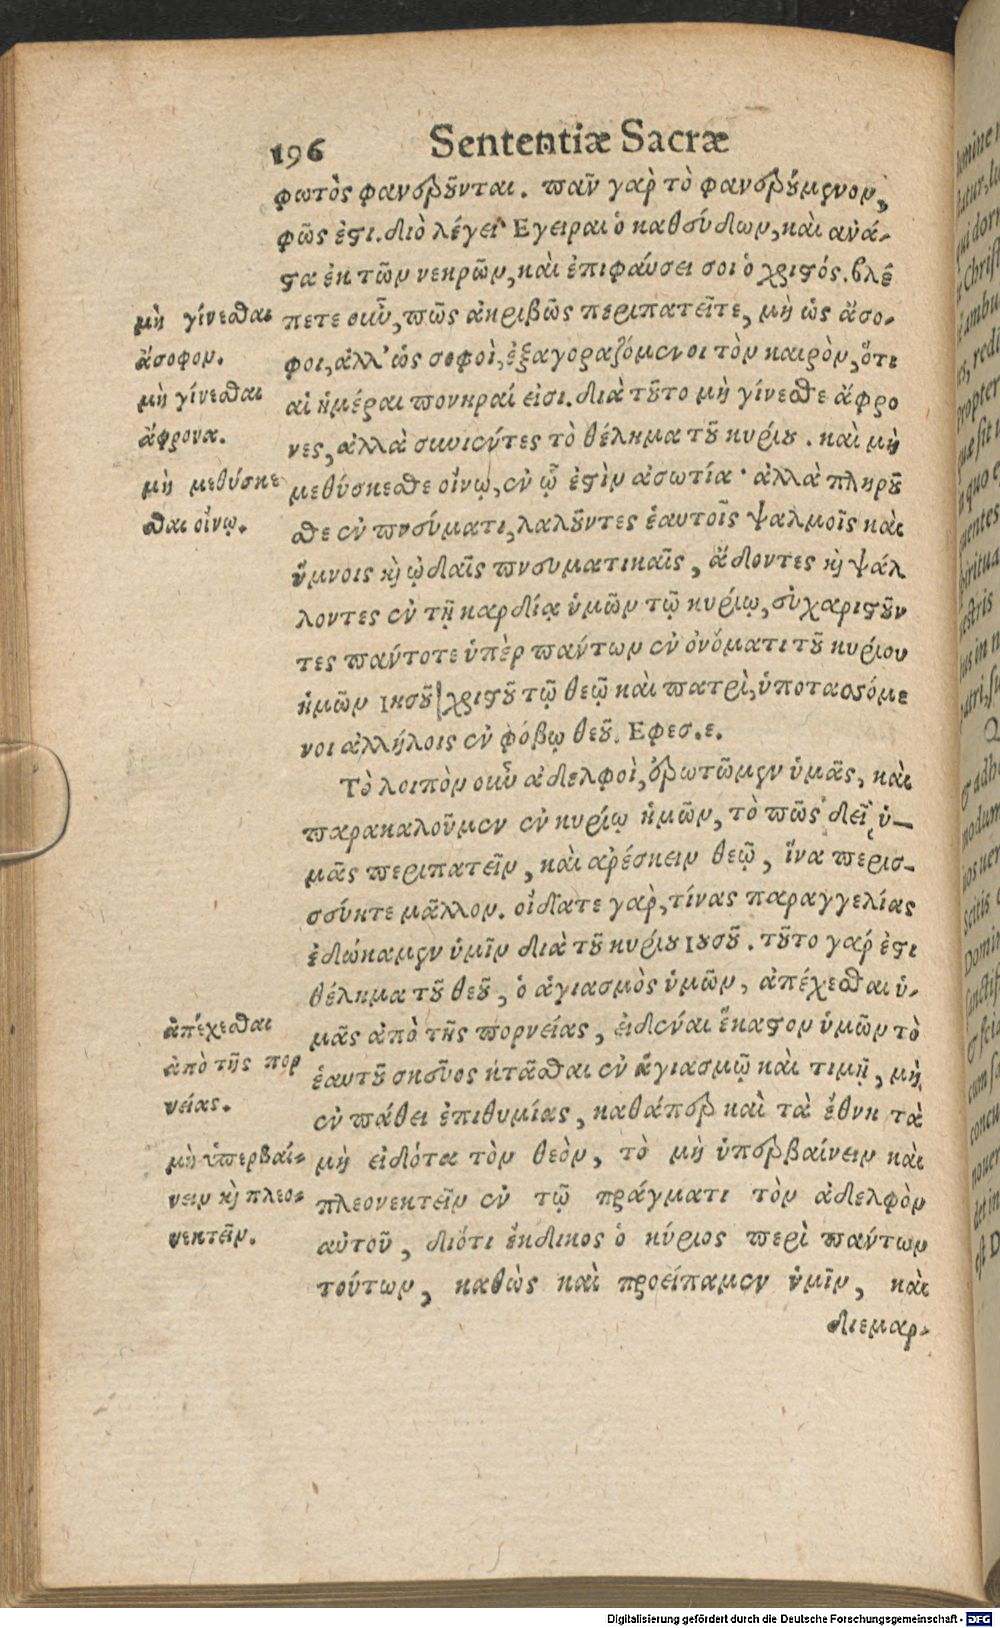 196 Sententiæ Sacræ
φωτὸς φανεροῦνται. πᾶν γὰρ τὸ φανερούμενον,
φῶς ἐστι. διὸ λέγει· Εγειραι ὁ καθεύδων, καὶ ἀνά-
στα ἐκ τῶν νεκρῶν, καὶ ἐπιφαύσει σοι ὁ χριστός. βλέ
πετε οὖν, πῶς ἀκριβῶς περιπατεῖτε, μὴ ὡς ἄσο-
φοι, ἀλλ' ὡς σοφοὶ, ἐξαγοραζόμενοι τὸν καιρὸν, ὅτι
αἱ ἡμέραι πονηραί εἰσι. διὰ τοῦτο μὴ γίνεσθε ἄφρο
νες, ἀλλὰ συνιέντες τὸ θέλημα τοῦ κυρίου. καὶ μὴ
μεθύσκεσθε οἴνῳ, ἐν ᾧ ἐστὶν ἀσωτία· ἀλλὰ πληροῦ
σθε ἐν πνεύματι, λαλοῦντες ἑαυτοῖς ψαλμοῖς καὶ
ὕμνοις καὶ ᾠδαῖς πνευματικαῖς, ᾄδοντες καὶ ψάλ
λοντες ἐν τῇ καρδίᾳ ὑμῶν τῷ κυρίῳ, εὐχαριστοῦν
τες πάντοτε ὑπὲρ πάντων ἐν ὀνόματι τοῦ κυρίου
ἡμῶν Ιησοῦ χριστοῦ τῷ θεῷ καὶ πατρὶ, ὑποτασσόμε
νοι ἀλλήλοις ἐν φόβῳ θεοῦ. Εφεσ. ε.
Τὸ λοιπὸν οὖν ἀδελφοὶ, ἐρωτῶμεν ὑμᾶς, καὶ
παρακαλοῦμεν ἐν κυρίῳ ἡμῶν, τὸ πῶς δεῖ ὑ-
μᾶς περιπατεῖν, καὶ ἀρέσκειν θεῷ, ἵνα περισ-
σεύητε μᾶλλον. οἴδατε γὰρ, τίνας παραγγελίας
ἐδώκαμεν ὑμῖν διὰ τοῦ κυρίου Ιουσοῦ. τοῦτο γάρ ἐστι
θέλημα τοῦ θεοῦ, ὁ ἁγιασμὸς ὑμῶν, ἀπέχεσθαι ὑ-
μᾶς ἀπὸ τῆς πορνείας, εἰδέναι ἕκαστον ὑμῶν τὸ
ἑαυτοῦ σκεῦος κτᾶσθαι ἐν ἁγιασμῷ καὶ τιμῇ, μὴ
ἐν πάθει ἐπιθυμίας, καθάπερ καὶ τὰ ἔθνη τὰ
μὴ εἰδότα τὸν θεὸν, τὸ μὴ ὑπερβαίνειν καὶ
πλεονεκτεῖν ἐν τῷ πράγματι τὸν ἀδελφὸν
αὐτοῦ, διότι ἔκδικος ὁ κύριος περὶ πάντων
τούτων, καθὼς καὶ προείπαμεν ὑμῖν, καὶ
διεμαρ-
μὴ γίνεσθαι
ἄσοφον.
μὴ γίνεσθαι
ἄφρονα.
μὴ μεθύσκε
σθαι οἴνῳ.
ἀπέχεσθαι
ἀπὸ τῆς πορ
νείας.
μὴ ὑπερβαί-
νειν καὶ πλεο-
νεκτεῖν.
Digitalisierung gefördert durch die Deutsche Forschungsgemeinschaft - DFG